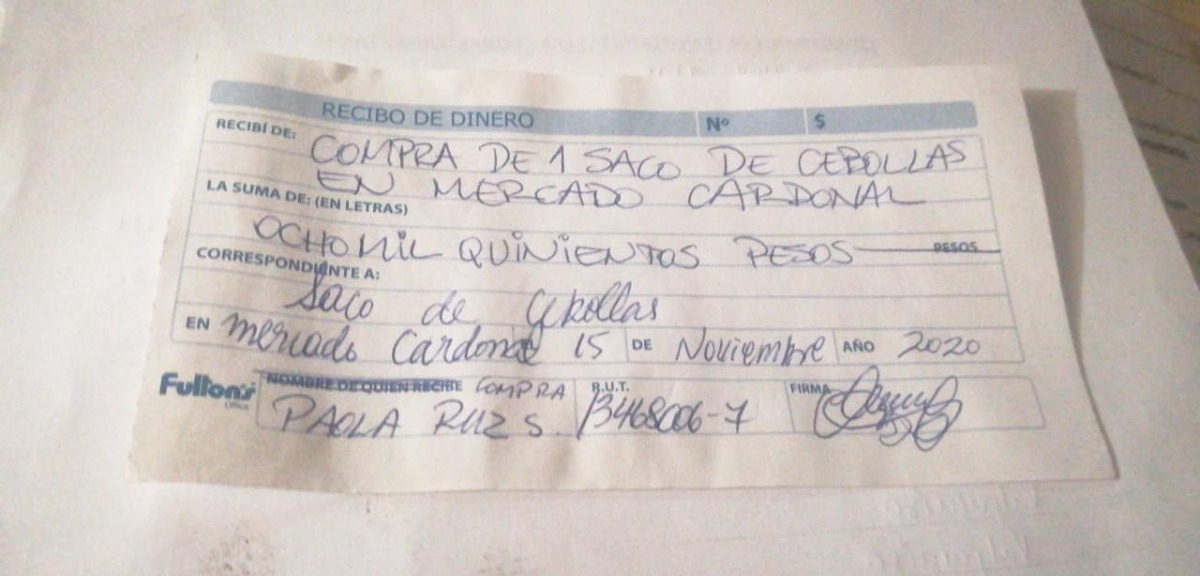 RECIBO DE DINERO Nº $
RECIBÍ DE: COMPRA DE 1 SACO DE CEBOLLAS
EN MERCADO CARDONAL
LA SUMA DE: (EN LETRAS)
OCHO MIL QUINIENTOS PESOS PESOS
CORRESPONDIENTE A:
Saco de Cebollas
EN Mercado Cardonal 15 DE Noviembre AÑO 2020
Fulton's Office
NOMBRE DE QUIEN RECIBE COMPRA R.U.T. FIRMA
PAOLA RUZ S. 13468006-7